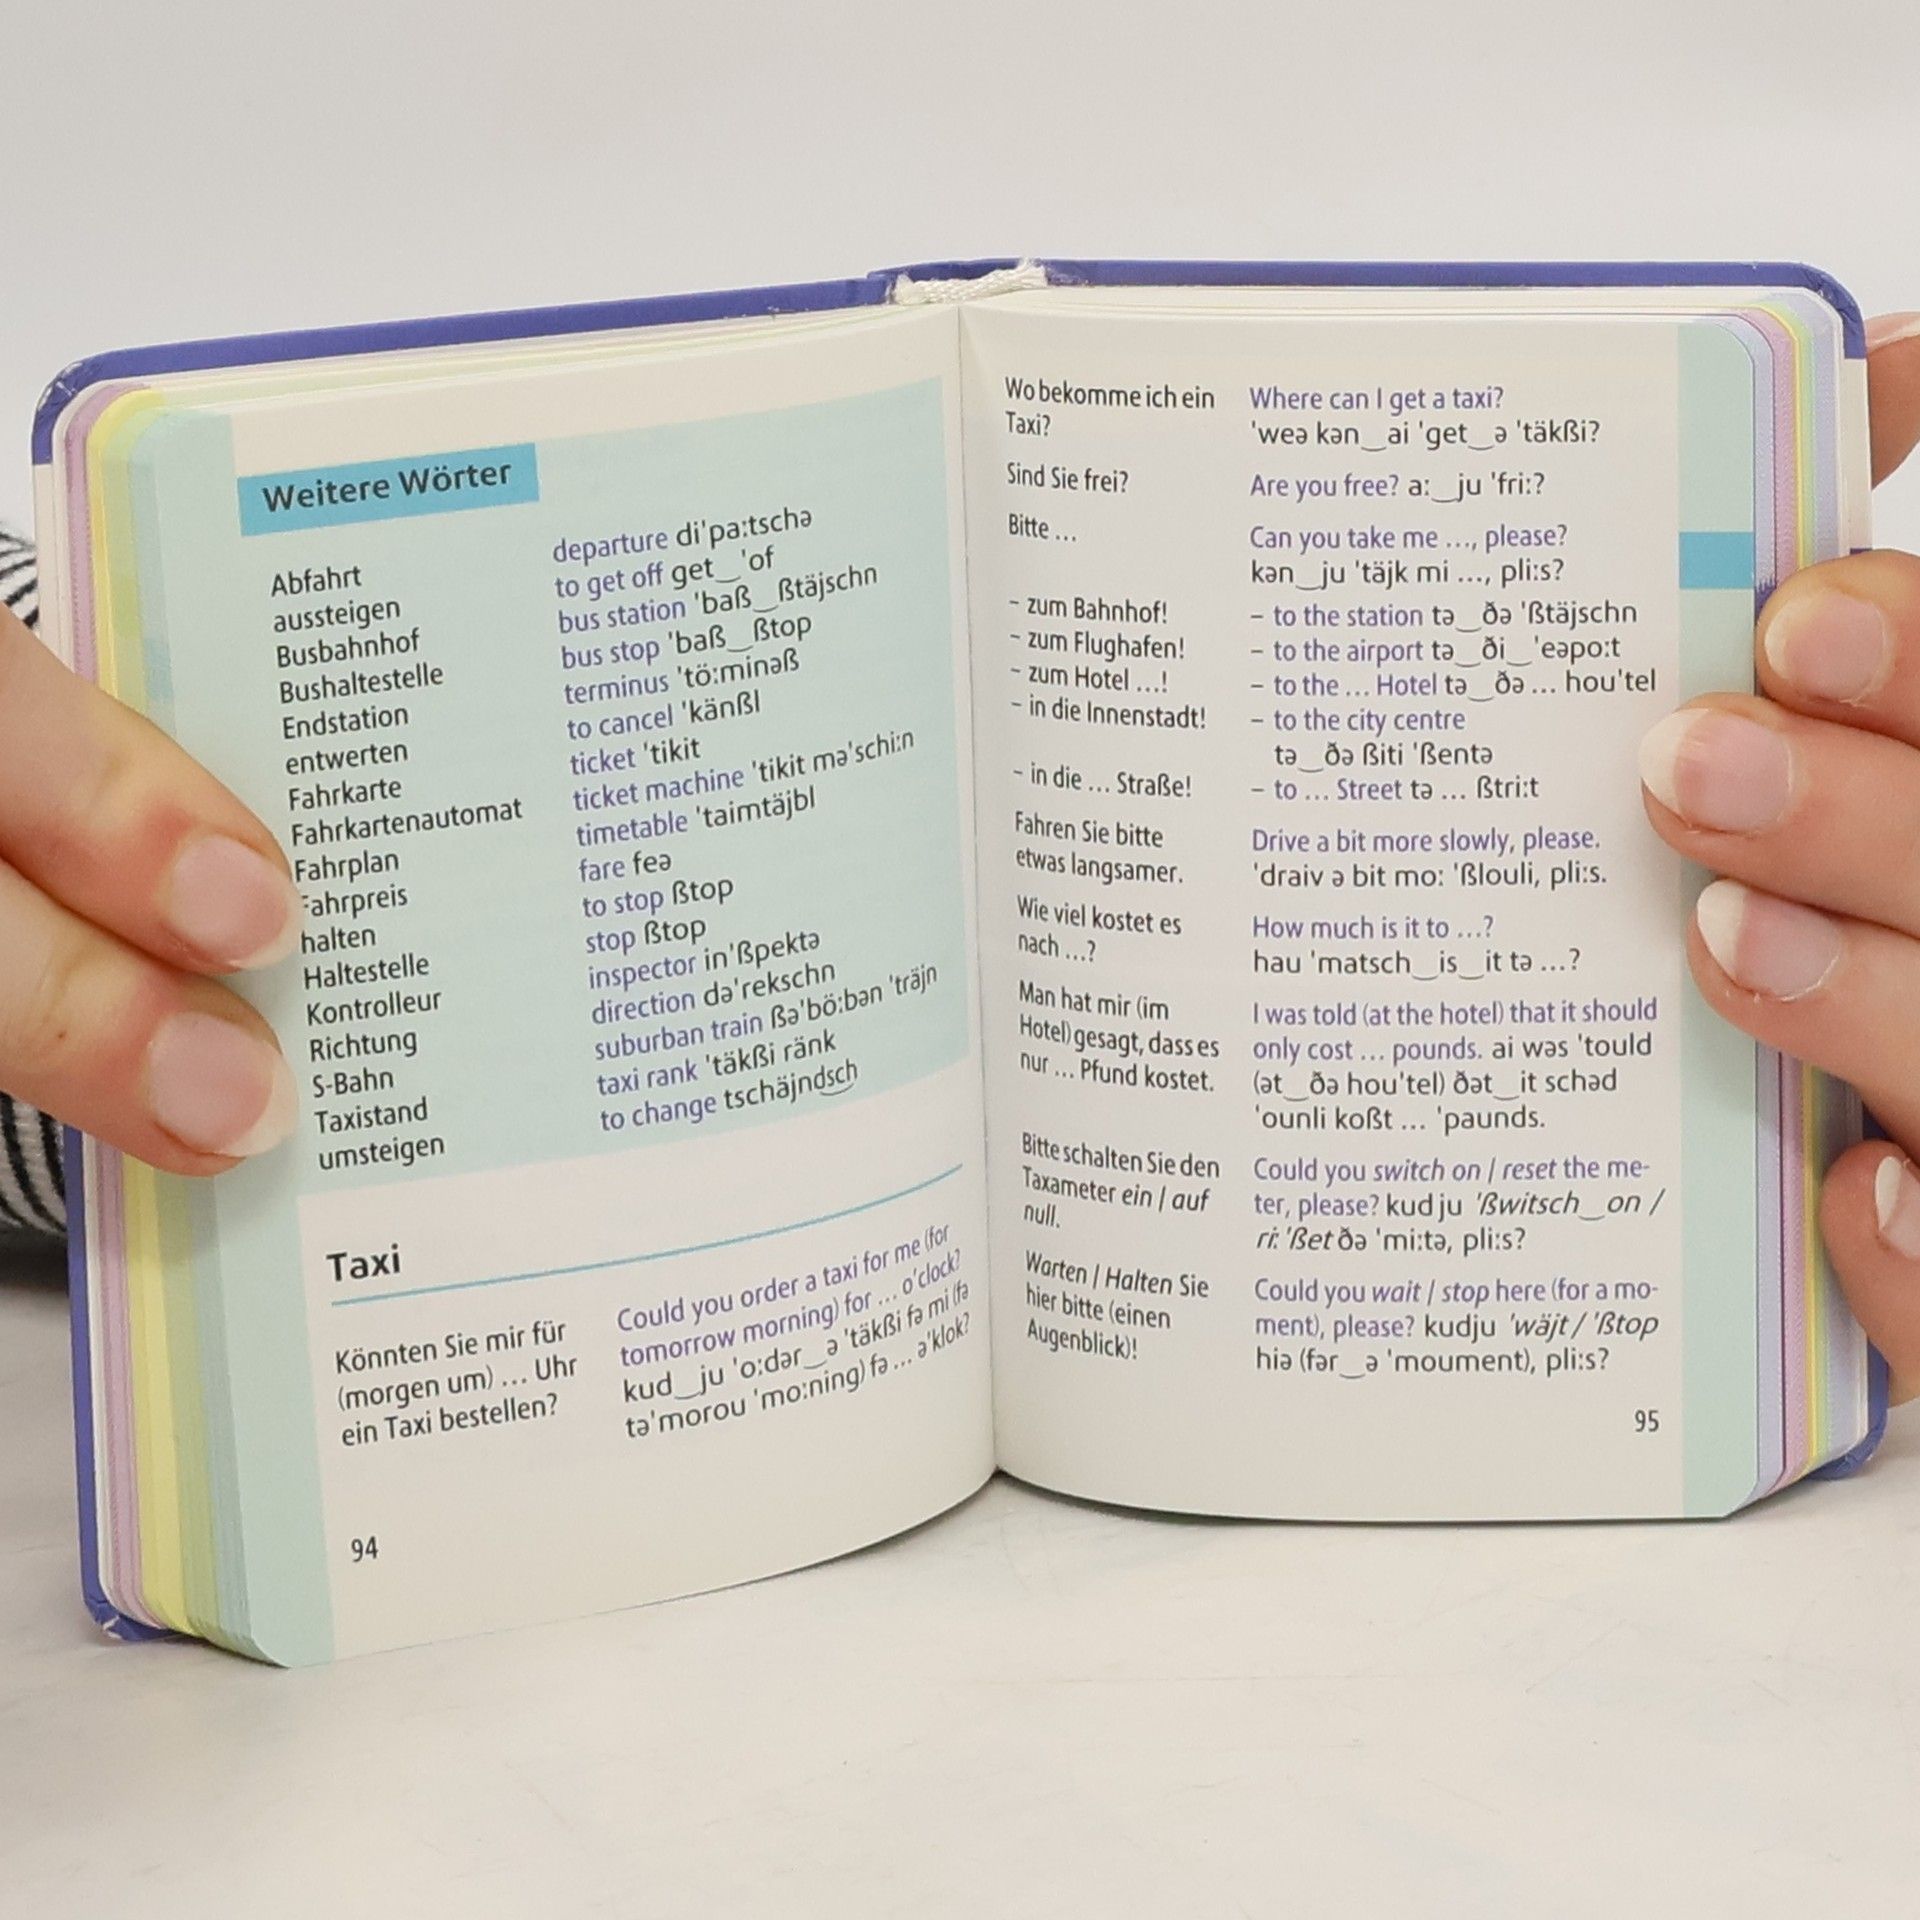 Weitere Wörter
Abfahrt departure di'pa:tschə
aussteigen to get off get‿'of
Busbahnhof bus station 'baß‿ßtäjschn
Bushaltestelle bus stop 'baß‿ßtop
Endstation terminus 'tö:minəß
entwerten to cancel 'känßl
Fahrkarte ticket 'tikit
Fahrkartenautomat ticket machine 'tikit mə'schi:n
Fahrplan timetable 'taimtäjbl
Fahrpreis fare feə
halten to stop ßtop
Haltestelle stop ßtop
Kontrolleur inspector in'ßpektə
Richtung direction də'rekschn
S-Bahn suburban train ßə'bö:bən 'träjn
Taxistand taxi rank 'täkßi ränk
umsteigen to change tschäjndsch
Taxi
Könnten Sie mir für
(morgen um) ... Uhr
ein Taxi bestellen?
Could you order a taxi for me (for
tomorrow morning) for ... o'clock?
kud‿ju 'o:dər‿ə 'täkßi fə mi (fə
tə'morou 'mo:ning) fə ... ə'klok?
94
Wo bekomme ich ein
Taxi?
Where can I get a taxi?
'weə kən‿ai 'get‿ə 'täkßi?
Sind Sie frei? Are you free? a:‿ju 'fri:?
Bitte ... Can you take me ..., please?
kən‿ju 'täjk mi ..., pli:s?
– zum Bahnhof! – to the station tə‿ðə 'ßtäjschn
– zum Flughafen! – to the airport tə‿ði‿'eəpo:t
– zum Hotel ...! – to the ... Hotel tə‿ðə ... hou'tel
– in die Innenstadt! – to the city centre
tə‿ðə ßiti 'ßentə
– in die ... Straße! – to ... Street tə ... ßtri:t
Fahren Sie bitte
etwas langsamer.
Drive a bit more slowly, please.
'draiv ə bit mo: 'ßlouli, pli:s.
Wie viel kostet es
nach ...?
How much is it to ...?
hau 'matsch‿is‿it tə ...?
Man hat mir (im
Hotel) gesagt, dass es
nur ... Pfund kostet.
I was told (at the hotel) that it should
only cost ... pounds. ai wəs 'tould
(ət‿ðə hou'tel) ðət‿it schəd
'ounli koßt ... 'paunds.
Bitte schalten Sie den
Taxameter ein / auf
null.
Could you switch on / reset the me-
ter, please? kud ju 'ßwitsch‿on /
ri:'ßet ðə 'mi:tə, pli:s?
Warten / Halten Sie
hier bitte (einen
Augenblick)!
Could you wait / stop here (for a mo-
ment), please? kudju 'wäjt / 'ßtop
hiə (fər‿ə 'moument), pli:s?
95